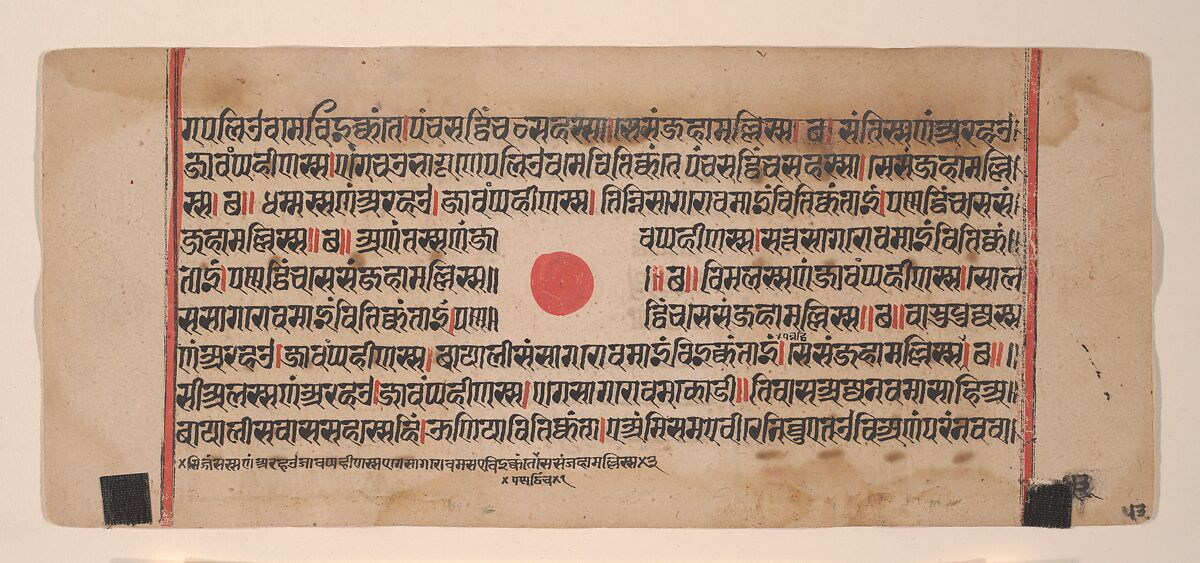 गपलिउवामविइक्कंत।पंचसट्ठिंचसयसहस्सा।।सेसंजहामल्लिस्स।ब।संतिस्सणंअरहउ
जावप्पहीणस्स।एगेचउभागूणपलिउवमेवितिक्कंतेपंचसट्ठिंचसयसहस्सा।सेसंजहामल्लि
स्स।ब॥ धम्मस्सणंअरहउ।जावप्पहीणस्स।तिन्निसागरोवमाइंवितिक्कंताइं।पणट्ठिंचसेसं
जहामल्लिस्स॥ब॥अणंतस्सणंजा वप्पहीणस्स।सत्तसागरोवमाइंवितिक्कं॥
ताइं।पणट्ठिंचसेसंजहामल्लिस्स॥ ॥ब॥विमलस्सणंजावप्पहीणस्स।सोल
ससागरोवमाइंवितिक्कंताइंपण॥ ट्ठिंचसेसंजहामल्लिस्स॥ब॥वासुपुज्जस्स
णंअरहउ।जावप्पहीणस्स।बायालीसंसागरोवमाइंविइक्कंताइं।सेसंजहामल्लिस्स।ब॥
सीअलस्सणंअरहउ।जावप्पहीणस्स।एगसागरोवमकोडी॥तिवासअद्धनवमासाहिअ॥
बायालीसवाससहस्सेहिं।ऊणियावितिक्कंता।एअंमिसमएवीरेनिव्वुएतउविअणंपरंनवव।
×सिजंसस्सणंअरहउजावप्पहीणस्सएगसागरोवमसएविइक्कंतेसेसंजहामल्लिस्स×३
×पणट्ठिंच×१
५३